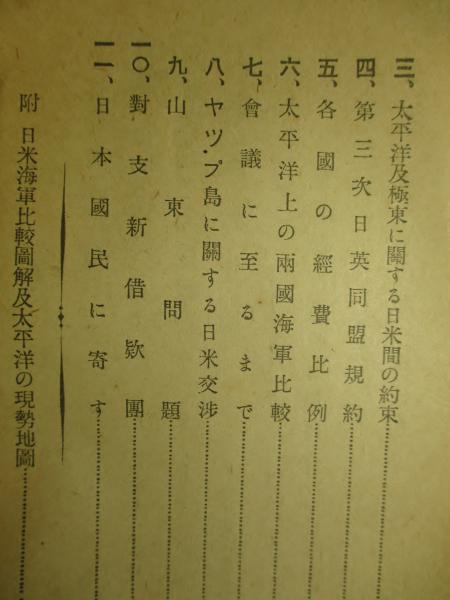 三、太平洋及極東に關する日米間の約束
四、第三次日英同盟規約
五、各國の經費比例
六、太平洋上の兩國海軍比較
七、會議に至るまで
八、ヤップ島に關する日米交渉
九、山東問題
一〇、對支新借欵團
一一、日本國民に寄す
附 日米海軍比較圖解及太平洋の現勢地圖